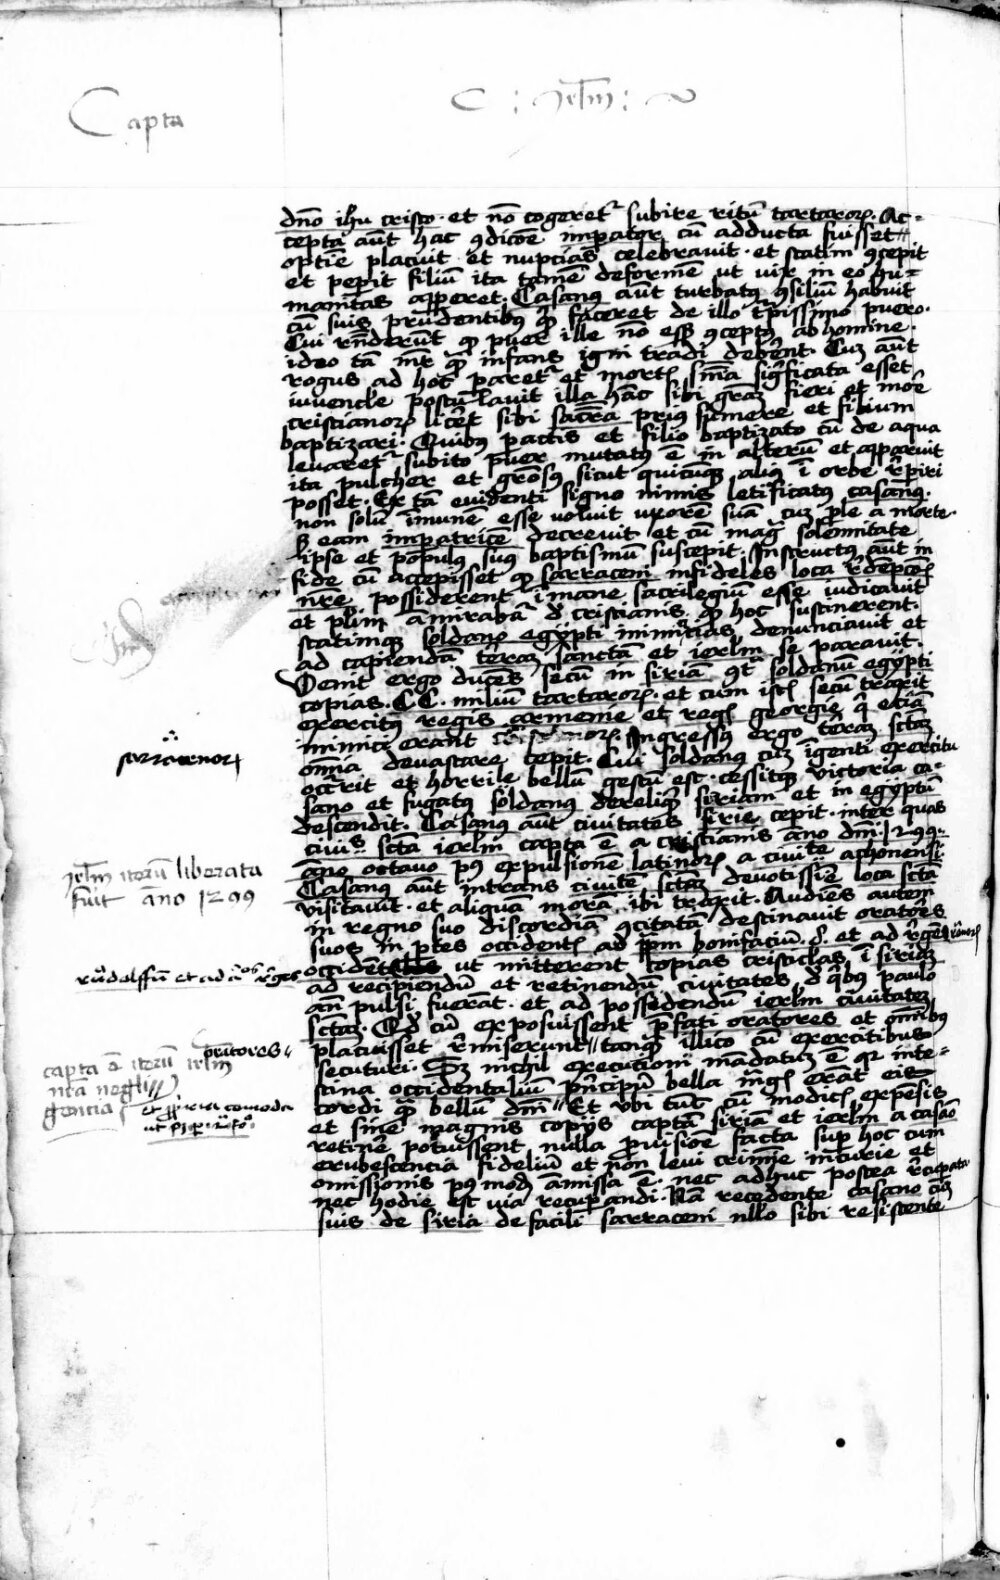 Capta
C : Jrlm : V
dno ihu cristo · et no cogeret subire ritu tartaroꝝ. Ac=
cepta aut hac ꝯdicoe imperator cu adducta fuisset
optie placuit et nuptias celebravit · et statim ꝯcepit
et peperit filiu ita tame deforme ut vix in eo hu=
manitas apperet. Casanus aut turbatus ꝯsiliu habuit
cu suis prudentibus qd faceret de illo turpissimo puero.
Cui rnderut qd puer ille no esset ꝯceptus ab homine.
ideo ta infans igni tradi deberent. Cuz aut
rogus ad hoc paret et mortis snia significata esset
iuvencle postulavit illa hac sibi graz fieri et more
cristianoꝝ liceret sibi sacra prius sumere et filium
baptizari. Quibus pactis et filio baptizato cu de aqua
levaret subito puer mutatus e in alteru et apparuit
ita pulcher et grosus sicut quicuqz alius i orbe repiri
posset. Ex ta evidenti signo nimis letificatus casanus.
non solu imune esse voluit uxore sua cuz ple a morte.
s eam impatrice decrevit et cu mag solemnitate
ipse et populus suus baptismu suscepit. Instructus aut in
fide cu accepisset qd sarraceni infideles loca redepcois
nre possiderent imane sacrilegiu esse iudicavit
et plim amirabat d cristianis qd hoc sustinerent.
statimqz soldano egypti inimicitias denunciavit et
ad capienda terraz sanctam et ierlm se paravit.
Venit ergo ducens secu in siriam ꝯt soldanu egypti
copias. CC. miliu tartaroꝝ. et cum istis secu traxit
exercitus regis armenie et regis georgie q etia
inimici erant. Ingressus ergo terraz sctaz
omnia devastare cepit. Cui soldanus cuz igenti exercitu
occurrit et horrile bellu gestu est · cessitqz victoria ca=
sano et fugatus soldanus dereliqt siriam et in egyptu
descendit. Casanus aut civitates sirie cepit · inter quas
civis scta ierlm capta e a cristianis ano dni · 1299.
ano octavo pus expulsione latinoꝝ a civite achonensi.
Casanus aut intrans civite sctaz devotissie loca scta
visitavit · et aliqua mora ibi traxit. Audiens autem
in regno suo discordia ꝯcitata destinavit oratores
suos in ptes occidentis ad ppm bonifatiu. 8. et ad reges
occidetales ut mitterent copias cristiclas i siriaz
ad recipiendu et retinendu civitates d qbus paulo
an pulsi fuerat. et ad possidendu ierlm civitatez
sctaz. Qd cu exposuissent pfati oratores et omibus
placuisset remiserunt tanquaz illico cu exercitibus
secuturi. Sz nichil executioni madatum e qr inte=
stina occidentaliu principu bella magis erat eis
cordi q bellu dni. Et ubi tuc cu modicis expesis
et sine magnis copiis capta siria et ierlm a casao
retinere potuissent nulla pvisioe facta sup hoc cum
erubescencia fideliu et non levi crimie incurie et
omissionis pus modu amissa e. nec adhuc postea recuperata
nec hodie est via recuperandi. Na recedente casano cuz
suis de siria de facili sarraceni nllo sibi resistente
sarracenoꝝ
Jrlm iteru liberata
fuit ano 1299
rudolffum et ad reges
oratores
capta e iteru irlm
nra negli=
gencia